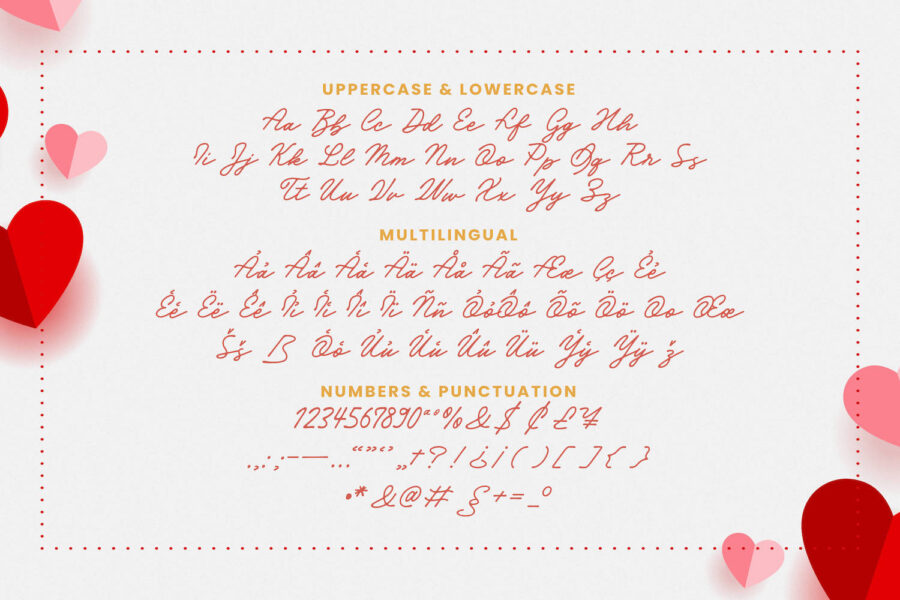 UPPERCASE & LOWERCASE
Aa Bb Cc Dd Ee Ff Gg Hh
Ii Jj Kk Ll Mm Nn Oo Pp Qq Rr Ss
Tt Uu Vv Ww Xx Yy Zz
MULTILINGUAL
Àà Ââ Áá Ää Åå Ãã Ææ Çç Èè
Éé Ëë Êê Ìì Íí Îî Ïï Ññ ÒòÔô Õõ Öö Oo Œœ
Šš ß Óó Ùù Úú Ûû Üü Ýý Ÿÿ ž
NUMBERS & PUNCTUATION
1234567890ªº%&$ ¢ £ ¥
.,:;-–—...“”‘’„†?!¿¡()[]{}
•*&@# § +=_°